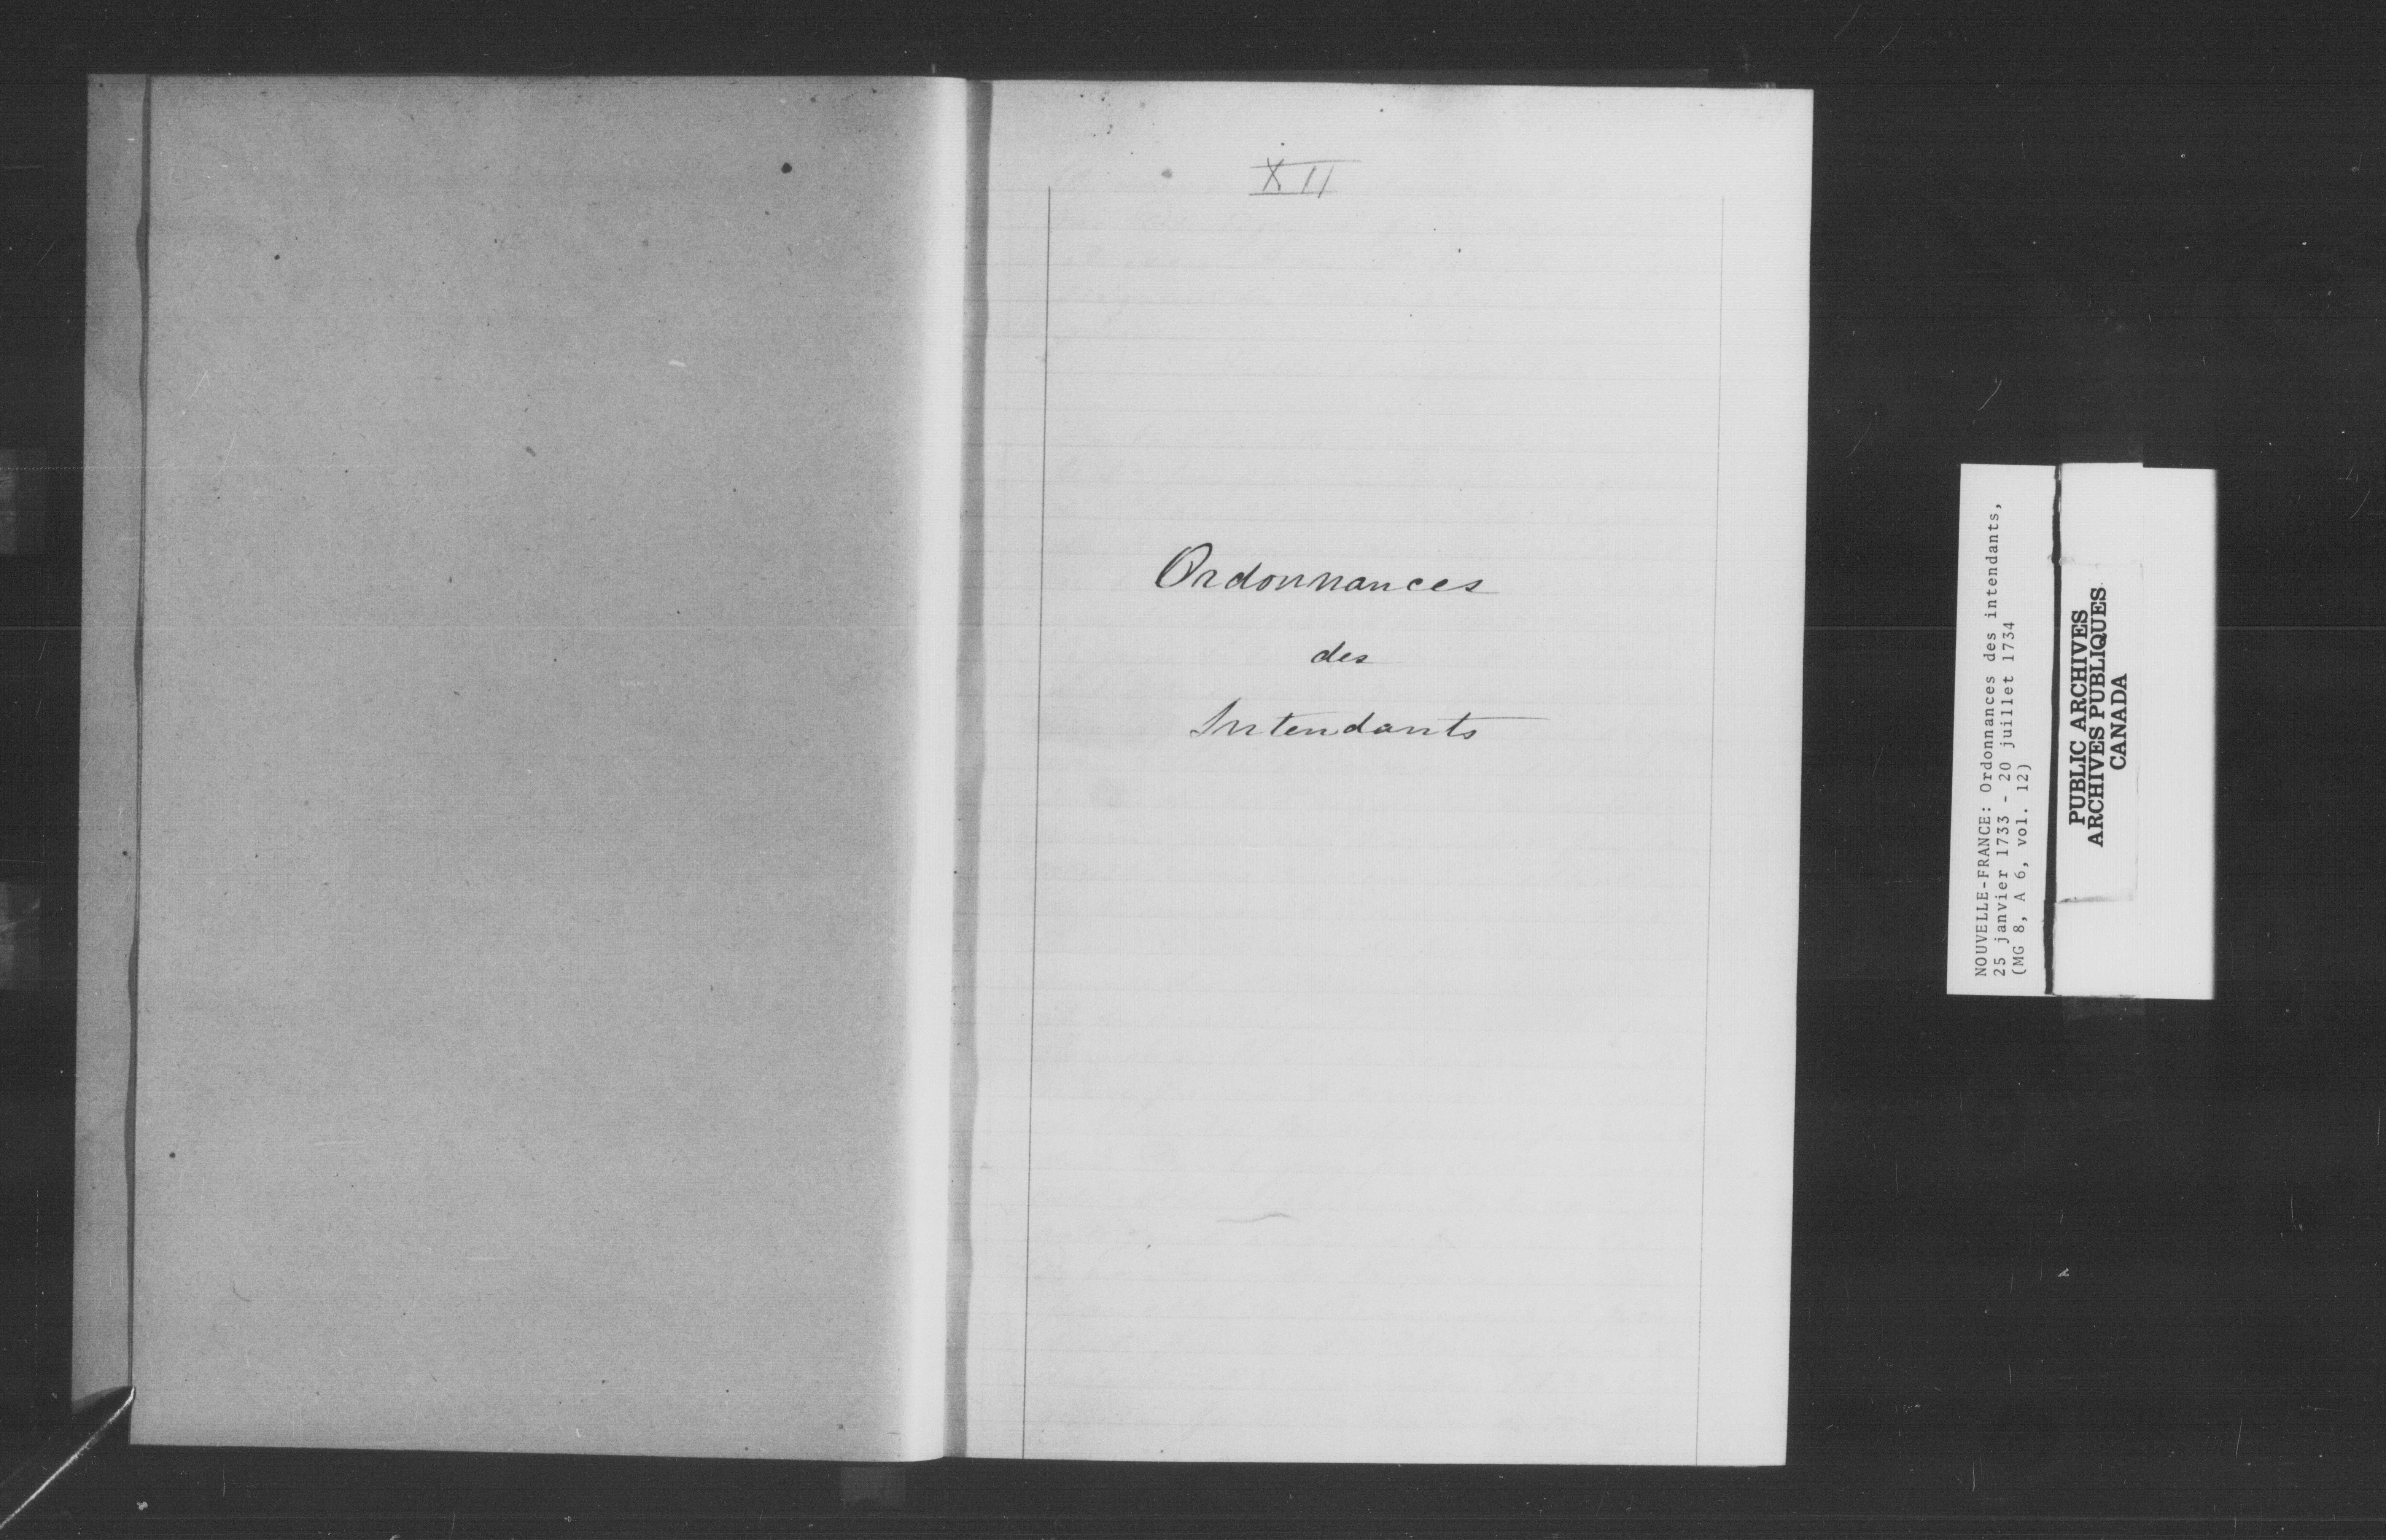 XII
Ordonnances
des
Intendants
NOUVELLE-FRANCE: Ordonnances des intendants,
25 janvier 1733 - 20 juillet 1734
(MG 8, A 6, vol. 12)
PUBLIC ARCHIVES
ARCHIVES PUBLIQUES
CANADA